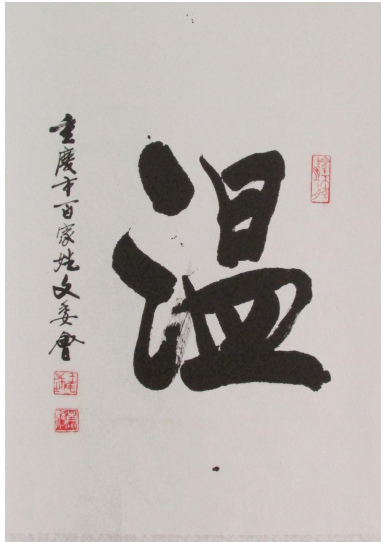 温
重慶市百家姓文委會